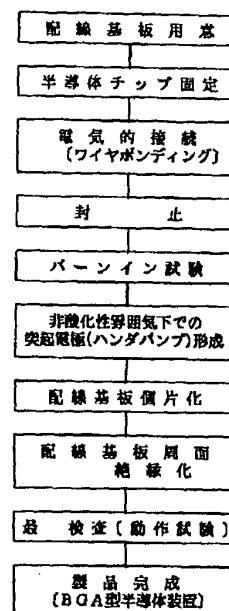 配線基板用意
半導体チップ固定
電気的接続
(ワイヤボンディング)
封止
バーンイン試験
非酸化性雰囲気下での
突起電極(ハンダバンプ)形成
配線基板個片化
配線基板周面
絶縁化
最 検査(動作試験)
製品完成
(BGA型半導体装置)